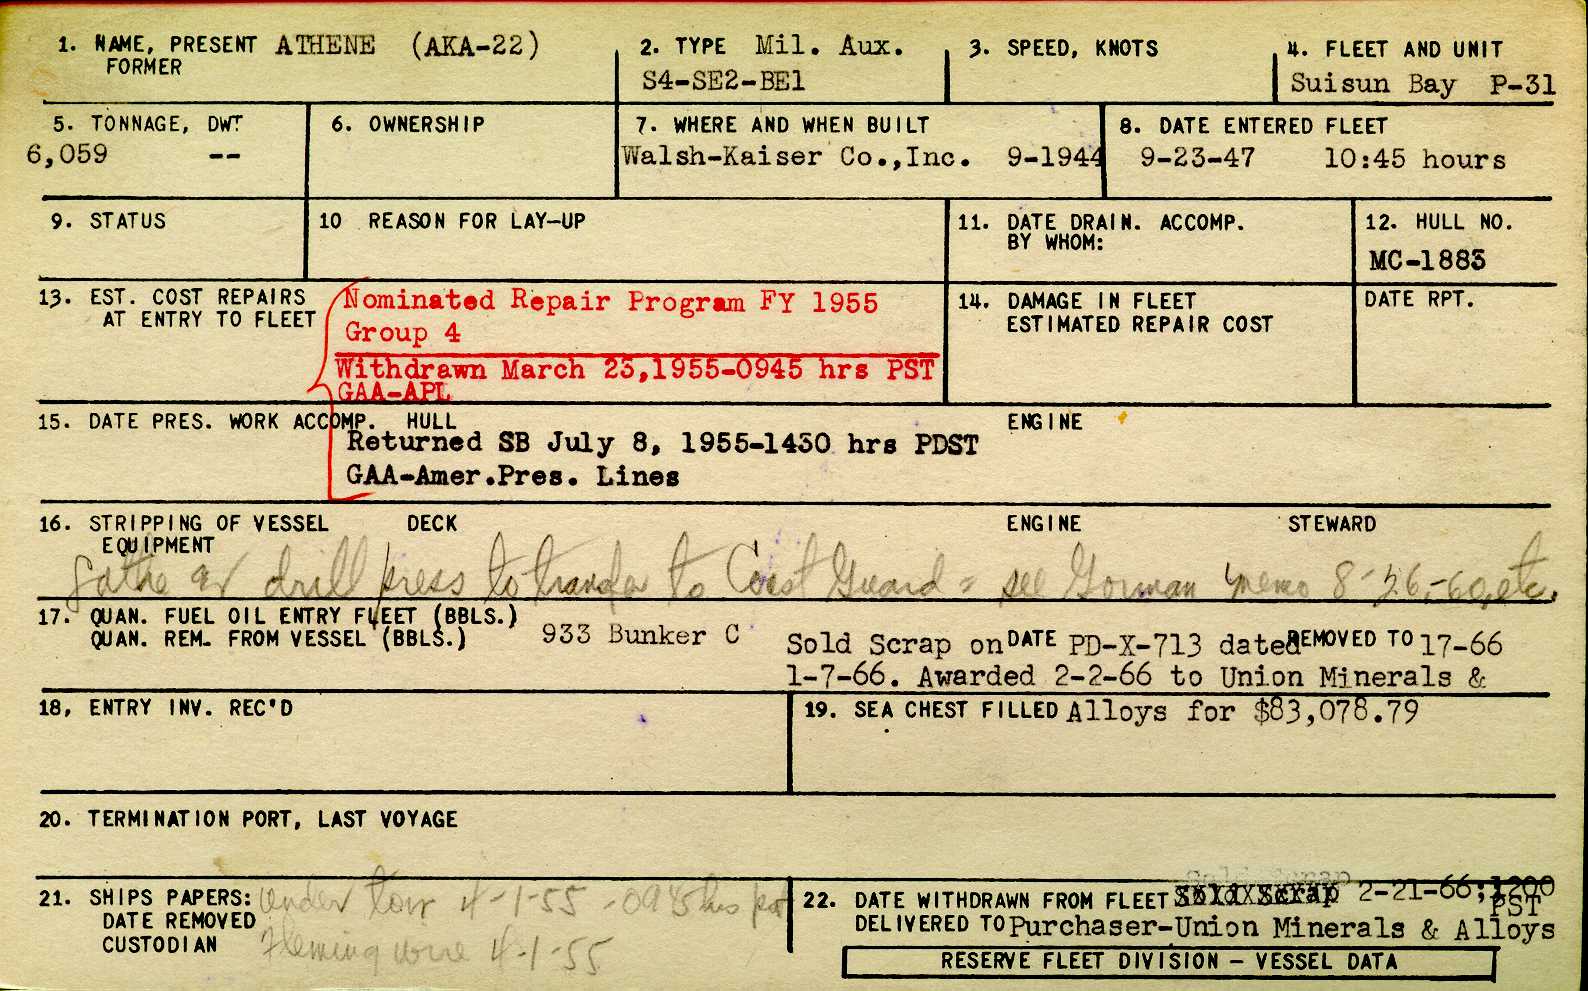 1. NAME, PRESENT ATHENE (AKA-22)
FORMER
2. TYPE Mil. Aux.
S4-SE2-BE1
3. SPEED, KNOTS
4. FLEET AND UNIT
Suisun Bay P-31
5. TONNAGE, DWT
6,059 --
6. OWNERSHIP
7. WHERE AND WHEN BUILT
Walsh-Kaiser Co.,Inc. 9-1944
8. DATE ENTERED FLEET
9-23-47 10:45 hours
9. STATUS
10 REASON FOR LAY-UP
11. DATE DRAIN. ACCOMP.
BY WHOM:
12. HULL NO.
MC-1883
13. EST. COST REPAIRS
AT ENTRY TO FLEET
Nominated Repair Program FY 1955
Group 4
Withdrawn March 23,1955-0945 hrs PST
GAA-APL
14. DAMAGE IN FLEET
ESTIMATED REPAIR COST
DATE RPT.
15. DATE PRES. WORK ACCOMP. HULL
ENGINE
Returned SB July 8, 1955-1430 hrs PDST
GAA-Amer.Pres. Lines
16. STRIPPING OF VESSEL
EQUIPMENT
DECK
ENGINE
STEWARD
drill press to transfer to Coast Guard = see Gorman memo etc.
17. QUAN. FUEL OIL ENTRY FLEET (BBLS.)
QUAN. REM. FROM VESSEL (BBLS.)
933 Bunker C
Sold Scrap on DATE PD-X-713 dated REMOVED TO 17-66
1-7-66. Awarded 2-2-66 to Union Minerals &
18, ENTRY INV. REC'D
19. SEA CHEST FILLED Alloys for $83,078.79
20. TERMINATION PORT, LAST VOYAGE
21. SHIPS PAPERS: Under tow 4-1-55 - 0945 hrs pst
DATE REMOVED
CUSTODIAN Fleming wire 4-1-55
22. DATE WITHDRAWN FROM FLEET Sold Scrap 2-21-66; 1200
PST
DELIVERED TO Purchaser-Union Minerals & Alloys
RESERVE FLEET DIVISION - VESSEL DATA